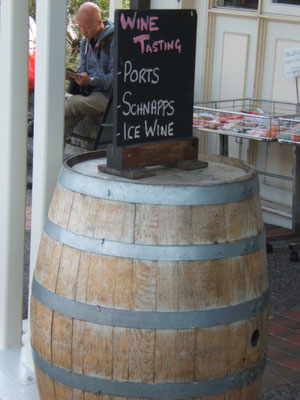 WINE
TASTING
- PORTS
- SCHNAPPS
- ICE WINE